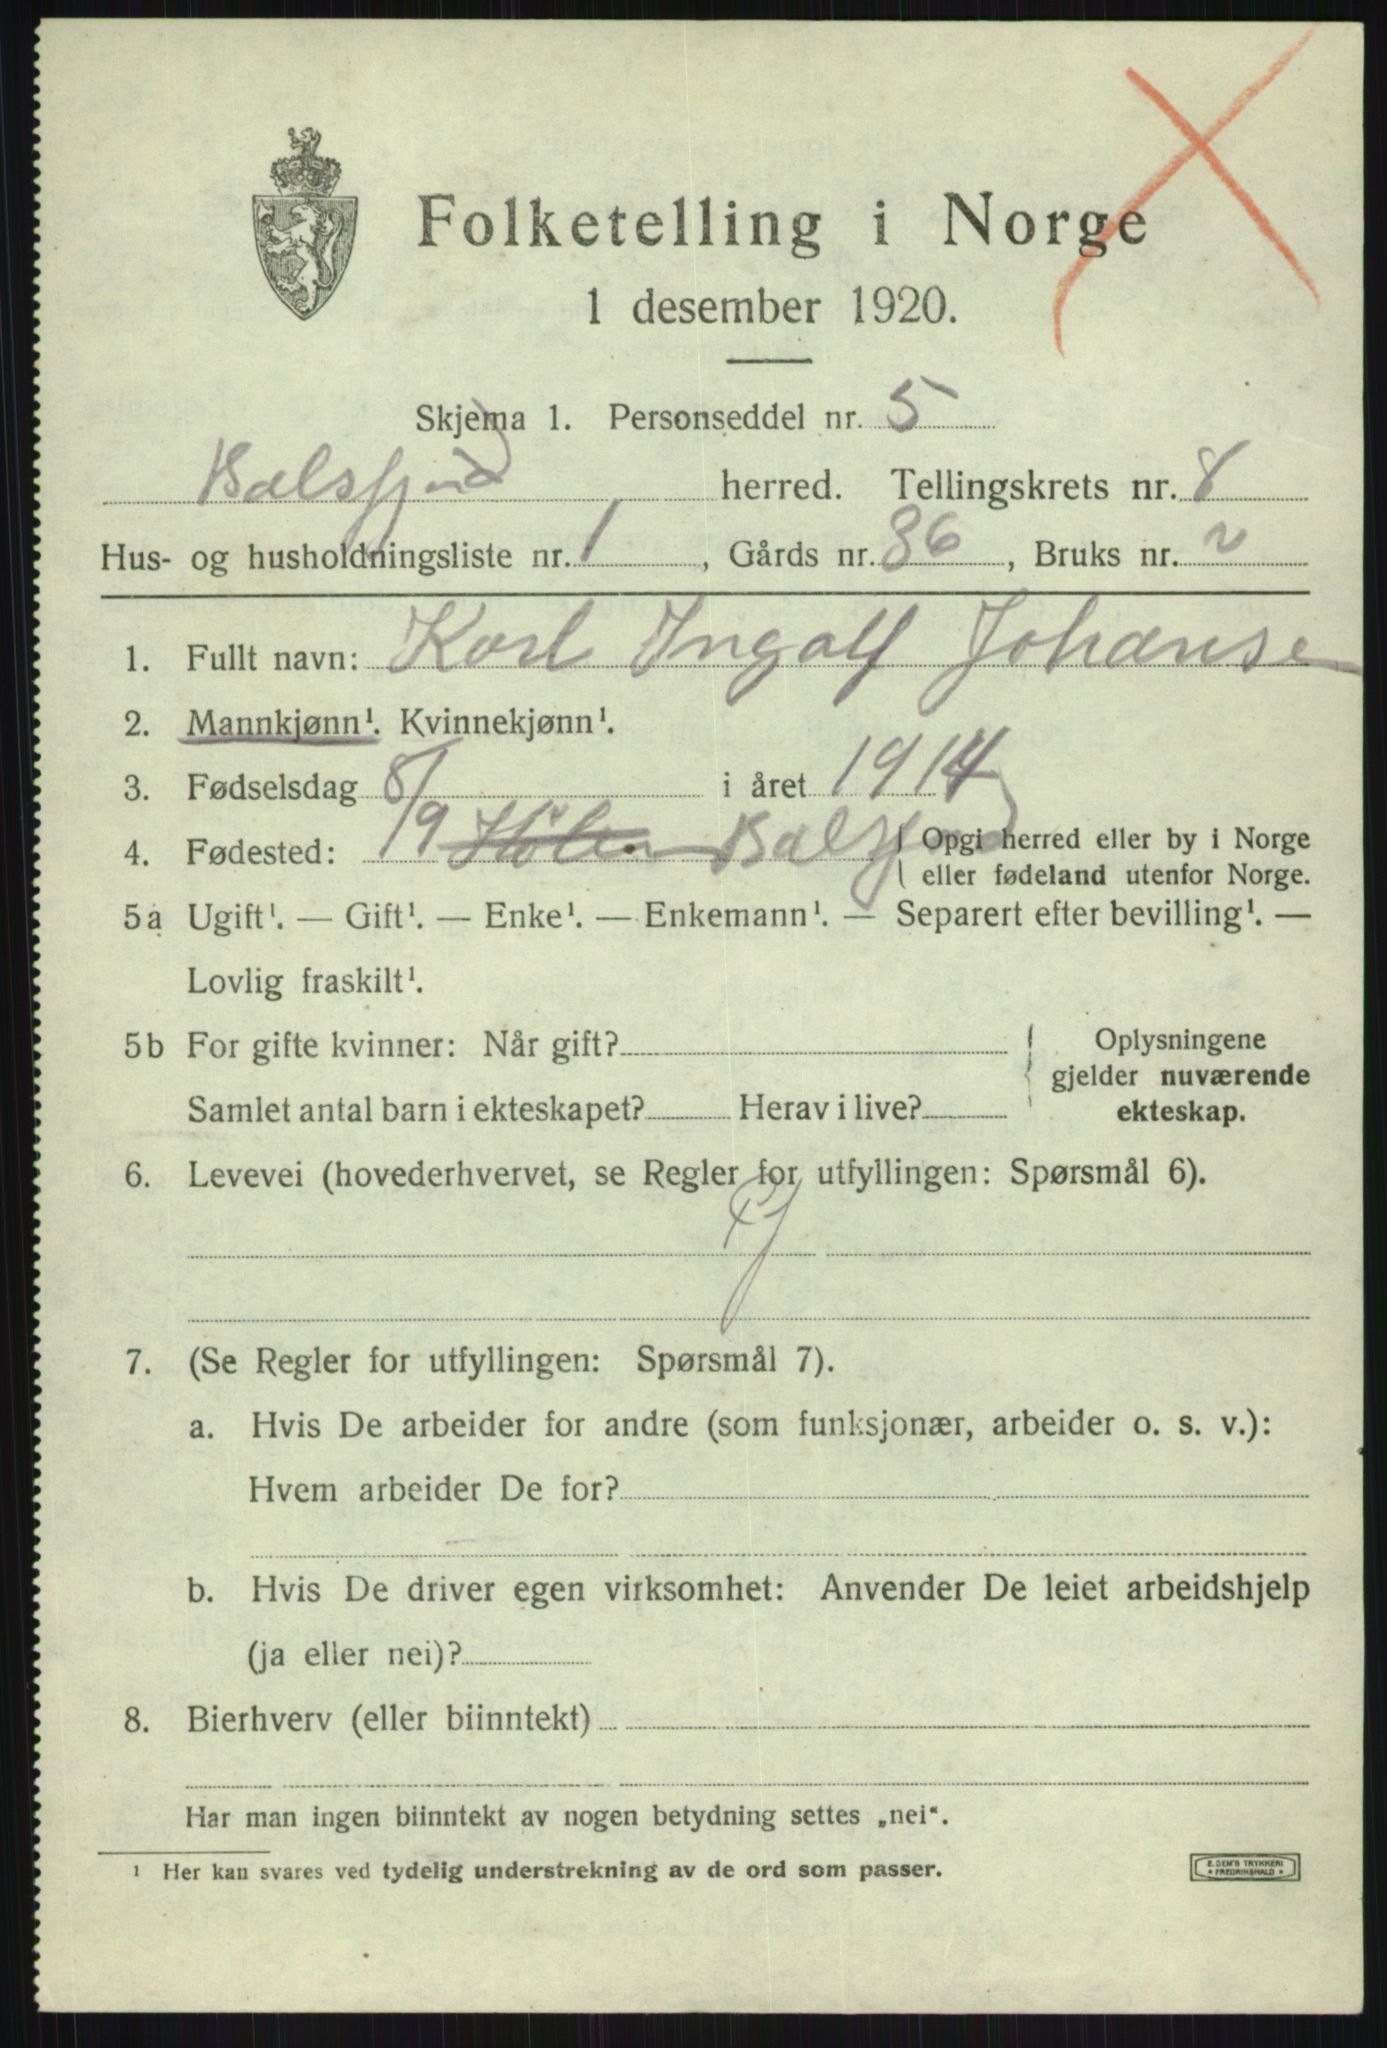 Folketelling i Norge
1 desember 1920.
Skjema 1. Personseddel nr. 5
Balsfjord herred. Tellingskrets nr. 8
Hus- og husholdningsliste nr. 1, Gårds nr. 86, Bruks nr. 2
1. Fullt navn: Karl Ingolf Johanse
2. Mannkjønn¹. Kvinnekjønn¹.
3. Fødselsdag 8/9 i året 1914
4. Fødested: Balsfjord { Opgi herred eller by i Norge
eller fødeland utenfor Norge.
5a Ugift¹. — Gift¹. — Enke¹. — Enkemann¹. — Separert efter bevilling¹. —
Lovlig fraskilt¹.
5b For gifte kvinner: Når gift? { Oplysningene
gjelder nuværende
Samlet antal barn i ekteskapet? Herav i live? ekteskap.
6. Levevei (hovederhvervet, se Regler for utfyllingen: Spørsmål 6).
7. (Se Regler for utfyllingen: Spørsmål 7).
a. Hvis De arbeider for andre (som funksjonær, arbeider o. s. v.):
Hvem arbeider De for?
b. Hvis De driver egen virksomhet: Anvender De leiet arbeidshjelp
(ja eller nei)?
8. Bierhverv (eller biinntekt)
Har man ingen biinntekt av nogen betydning settes „nei“.
¹ Her kan svares ved tydelig understrekning av de ord som passer.
E. SEM'S TRYKKERI
* FREDRIKSHALD *